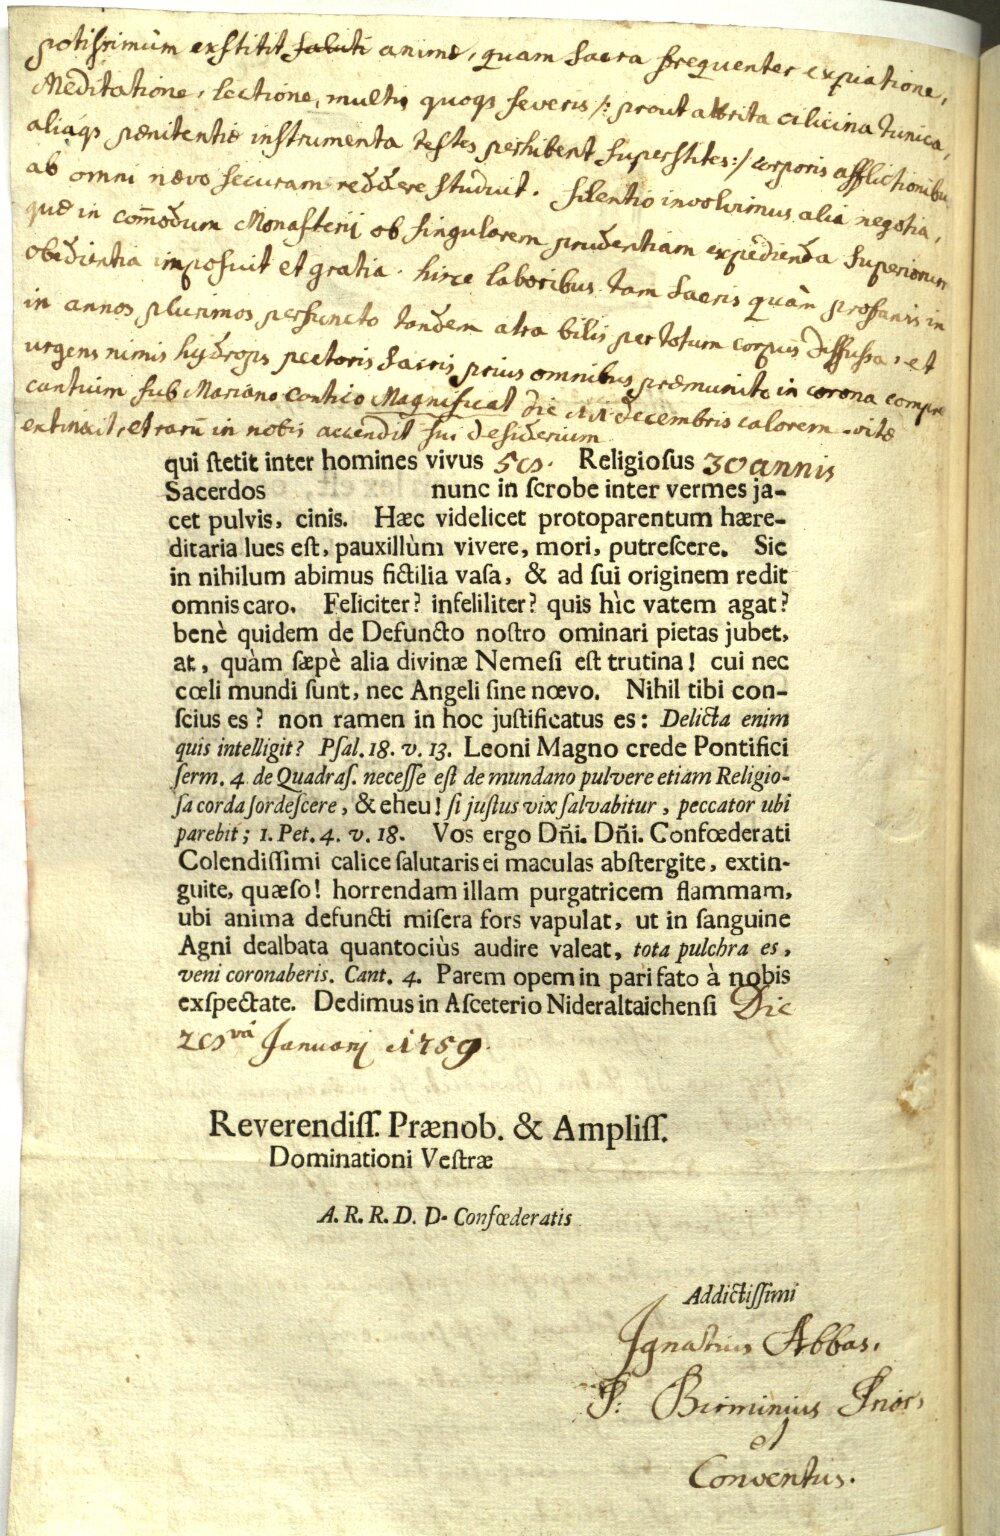 potissimùm exstitit saluti animæ, quam sacra frequenter expiatione,
Meditatione, lectione, multis quoqs severis /: prout attrita cilicina tunica,
aliaqs pænitentiæ instrumenta testes perhibent superstites :/ corporis afflictionibus
ab omni nævo securam reddere studuit. Silentio involvimus alia negotia,
quæ in com̄odum Monasterij ob singularem prudentiam expedienda Superiorum
obedientia imposuit et gratia. hisce laboribus tam sacris quàm profanis in
in annos plurimos perfuncto tandem atra bilis per totum corpus diffussa, et
urgens nimis hydrops pectoris sacris prius omnibus præmunito in corona compre
cantium sub Mariano cantico Magnificat die 11 decembris calorem vitæ
extinxit, et rarū in nobis accendit sui desiderium
qui ſtetit inter homines vivus 56. Religioſus 30 annis
Sacerdos nunc in ſcrobe inter vermes ja-
cet pulvis, cinis. Hæc videlicet protoparentum hære-
ditaria lues eſt, pauxillùm vivere, mori, putreſcere. Sic
in nihilum abimus fictilia vaſa, & ad ſui originem redit
omnis caro. Feliciter? infeliliter? quis hìc vatem agat?
benè quidem de Defuncto noſtro ominari pietas jubet,
at, quàm ſæpè alia divinæ Nemeſi eſt trutina! cui nec
cœli mundi ſunt, nec Angeli ſine nœvo. Nihil tibi con-
ſcius es? non ramen in hoc juſtificatus es: Delicta enim
quis intelligit? Pſal. 18. v. 13. Leoni Magno crede Pontifici
ſerm. 4. de Quadraſ. neceſſe eſt de mundano pulvere etiam Religio-
ſa corda ſordeſcere, & eheu! ſi juſtus vix ſalvabitur, peccator ubi
parebit; 1. Pet. 4. v. 18. Vos ergo Dñi. Dñi. Confœderati
Colendiſſimi calice ſalutaris ei maculas abſtergite, extin-
guite, quæſo! horrendam illam purgatricem flammam,
ubi anima defuncti miſera fors vapulat, ut in ſanguine
Agni dealbata quantociùs audire valeat, tota pulchra es,
veni coronaberis. Cant. 4. Parem opem in pari fato à nobis
exſpectate. Dedimus in Aſceterio Nideraltaichenſi Die
26 vâ Januarij 1759.
Reverendiſſ. Prænob. & Ampliſſ.
Dominationi Veſtræ
A. R. R. D. D. Confœderatis
Addictiſſimi
Ignatius Abbas.
P: Birminius Prior,
et
Conventus.